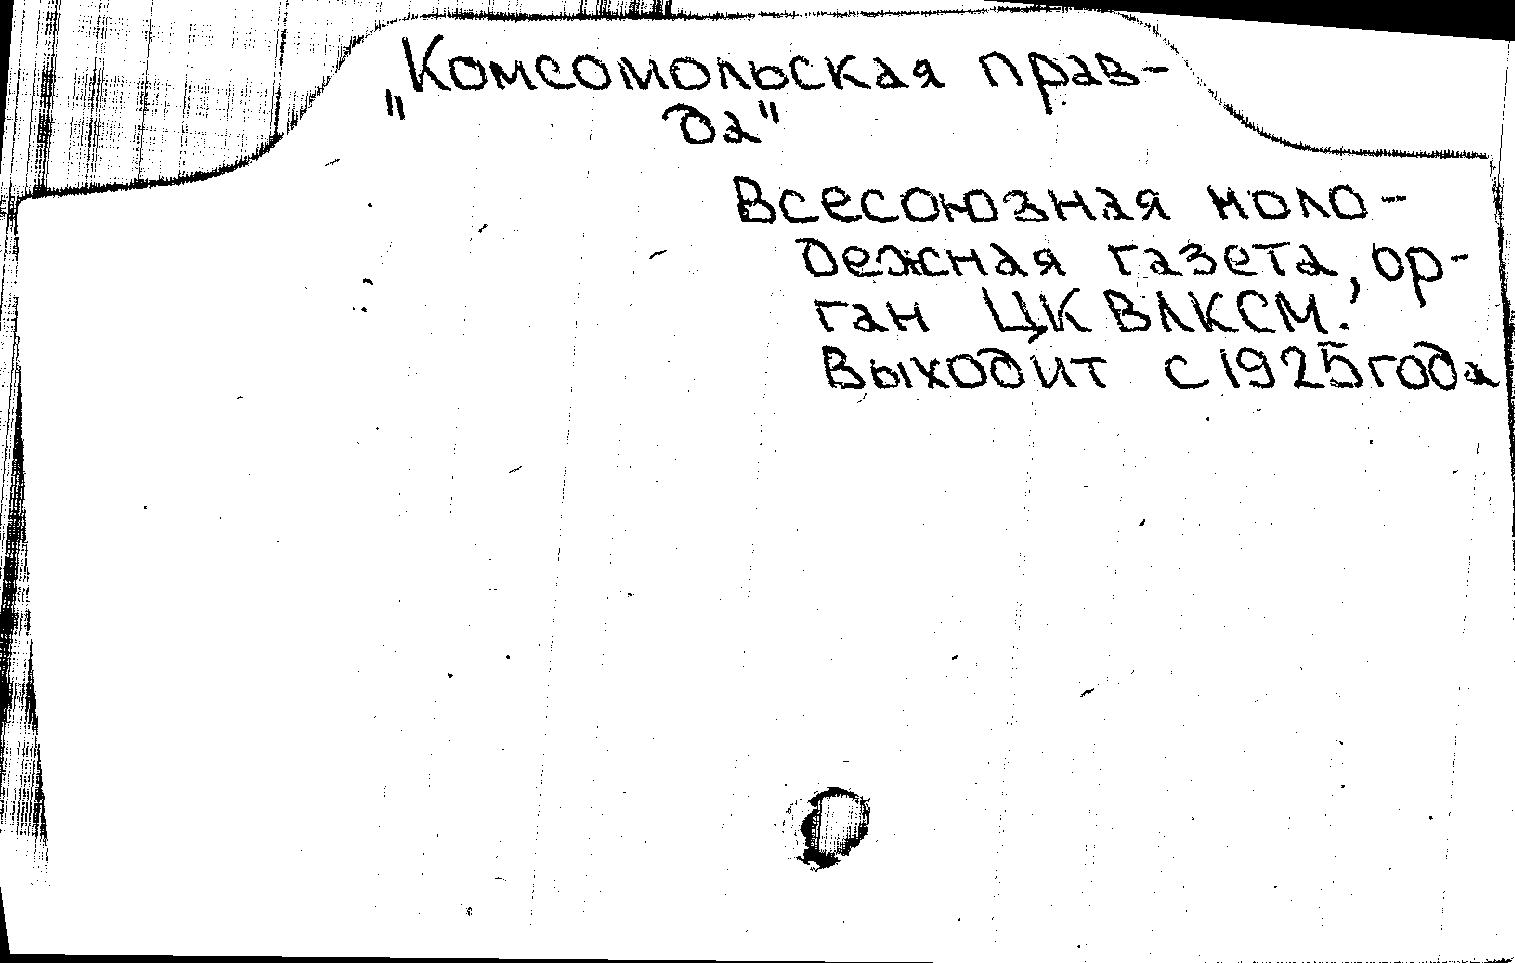 „Комсомольская прав-
да"
Всесоюзная моло-
дежная газета, ор-
ган ЦК ВЛКСМ.
Выходит с 1925 года